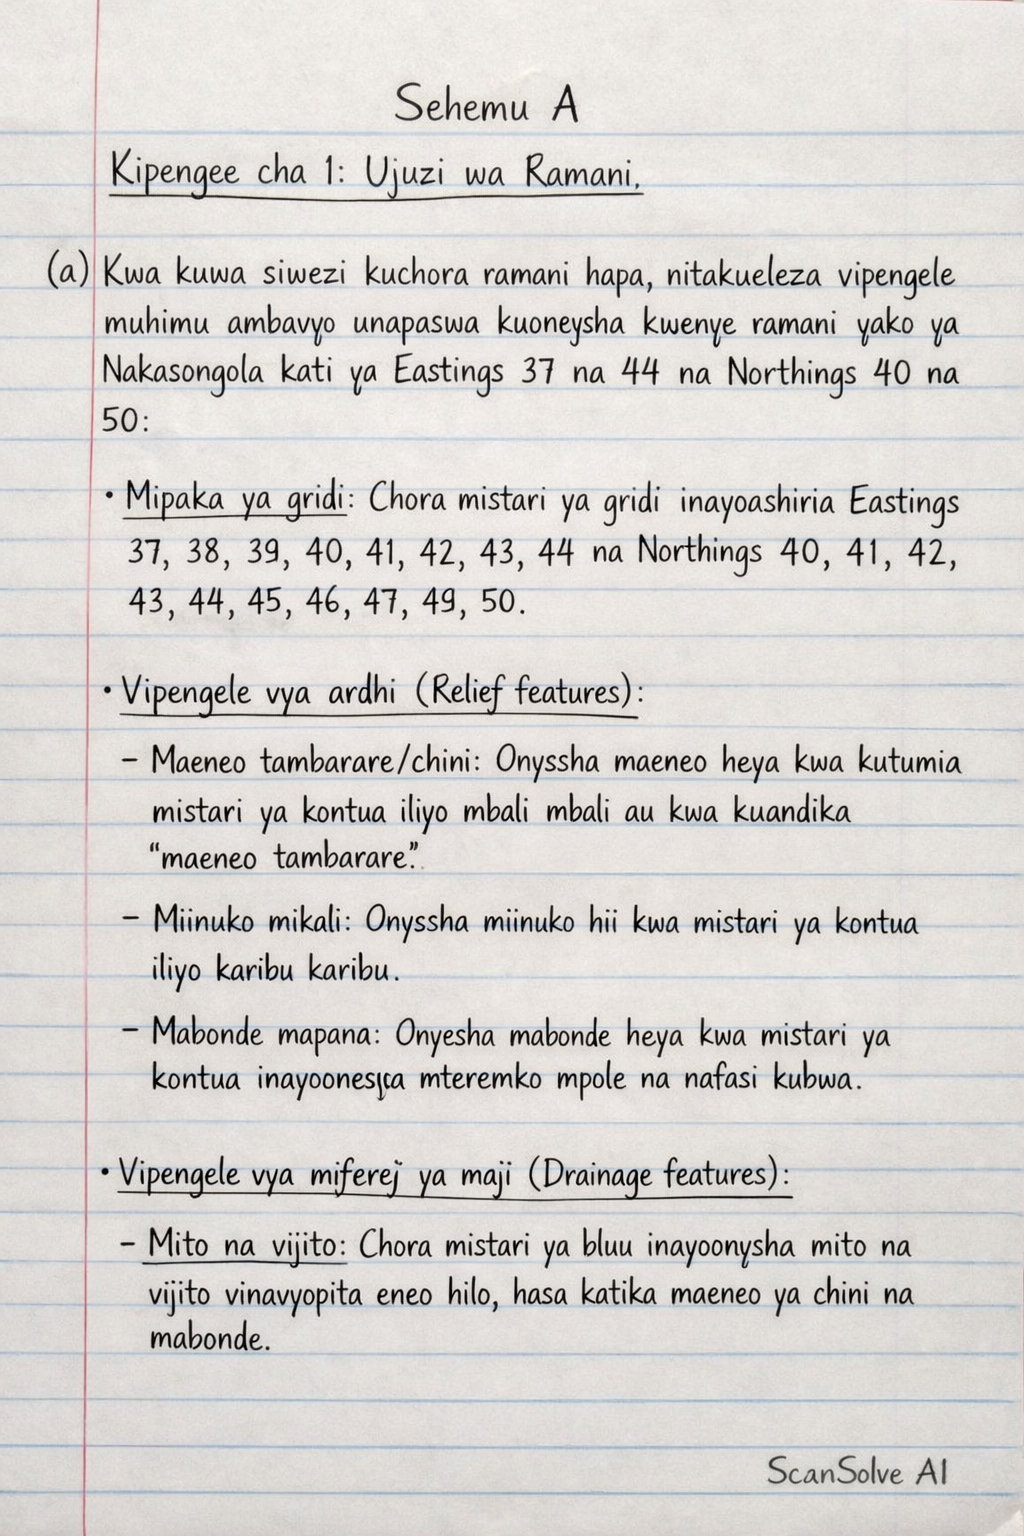 Sehemu A
Kipengee cha 1: Ujuzi wa Ramani.
(a) Kwa kuwa siwezi kuchora ramani hapa, nitakueleza vipengele
muhimu ambavyo unapaswa kuoneysha kwenye ramani yako ya
Nakasongola kati ya Eastings 37 na 44 na Northings 40 na
50:
• Mipaka ya gridi: Chora mistari ya gridi inayoashiria Eastings
37, 38, 39, 40, 41, 42, 43, 44 na Northings 40, 41, 42,
43, 44, 45, 46, 47, 49, 50.
• Vipengele vya ardhi (Relief features):
– Maeneo tambarare/chini: Onyssha maeneo heya kwa kutumia
mistari ya kontua iliyo mbali mbali au kwa kuandika
"maeneo tambarare".
– Miinuko mikali: Onyssha miinuko hii kwa mistari ya kontua
iliyo karibu karibu.
– Mabonde mapana: Onyesha mabonde heya kwa mistari ya
kontua mteremko mpole na nafasi kubwa.
• Vipengele vya miferej ya maji (Drainage features):
– Mito na vijito: Chora mistari ya bluu inayoonysha mito na
vijito vinavyopita eneo hilo, hasa katika maeneo ya chini na
mabonde.
ScanSolve AI